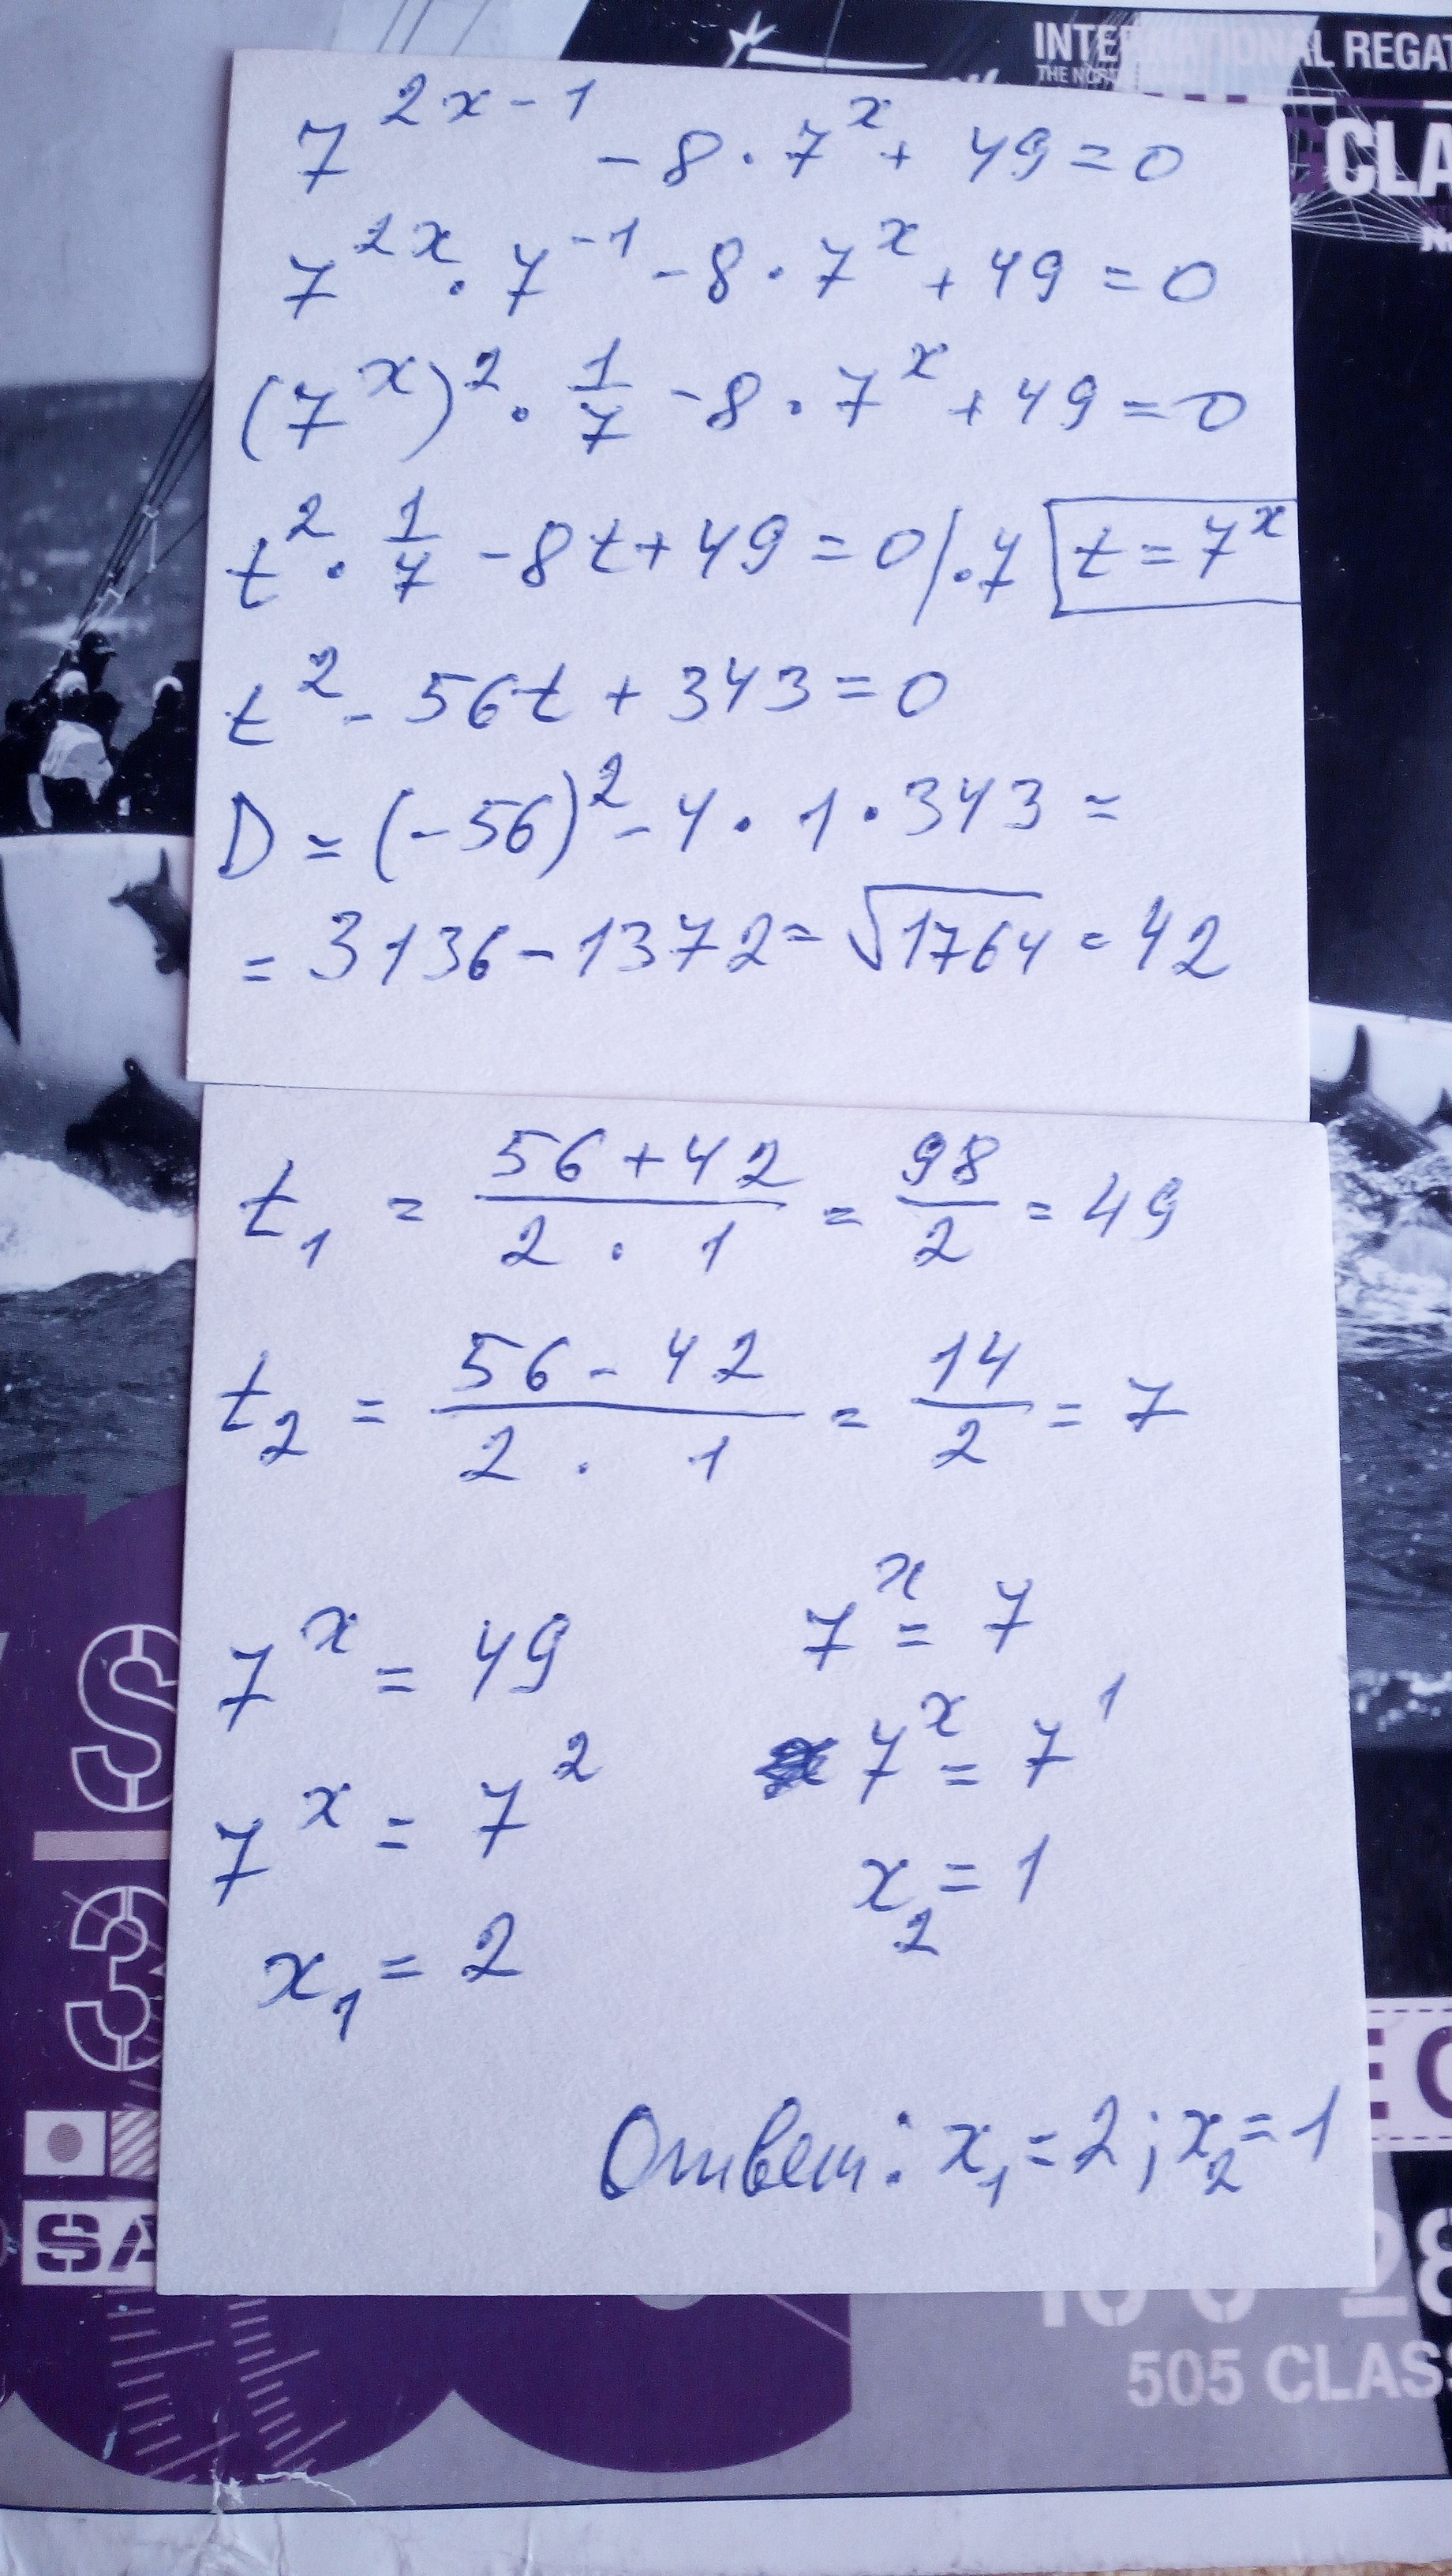 INTERNATIONAL REGAT
THE NOR
CLA
7^{2x-1} - 8 · 7^x + 49 = 0
7^{2x} · 7^{-1} - 8 · 7^x + 49 = 0
(7^x)^2 · 1/7 - 8 · 7^x + 49 = 0
t^2 · 1/7 - 8t + 49 = 0 | · 7 t = 7^x
t^2 - 56t + 343 = 0
D = (-56)^2 - 4 · 1 · 343 =
= 3136 - 1372 = √1764 = 42
t_1 = (56 + 42)/(2 · 1) = 98/2 = 49
t_2 = (56 - 42)/(2 · 1) = 14/2 = 7
7^x = 49
7^x = 7^2
x_1 = 2
7^x = 7
7^x = 7^1
x_2 = 1
Ответ: x_1 = 2 ; x_2 = 1
SA
505 CLASS